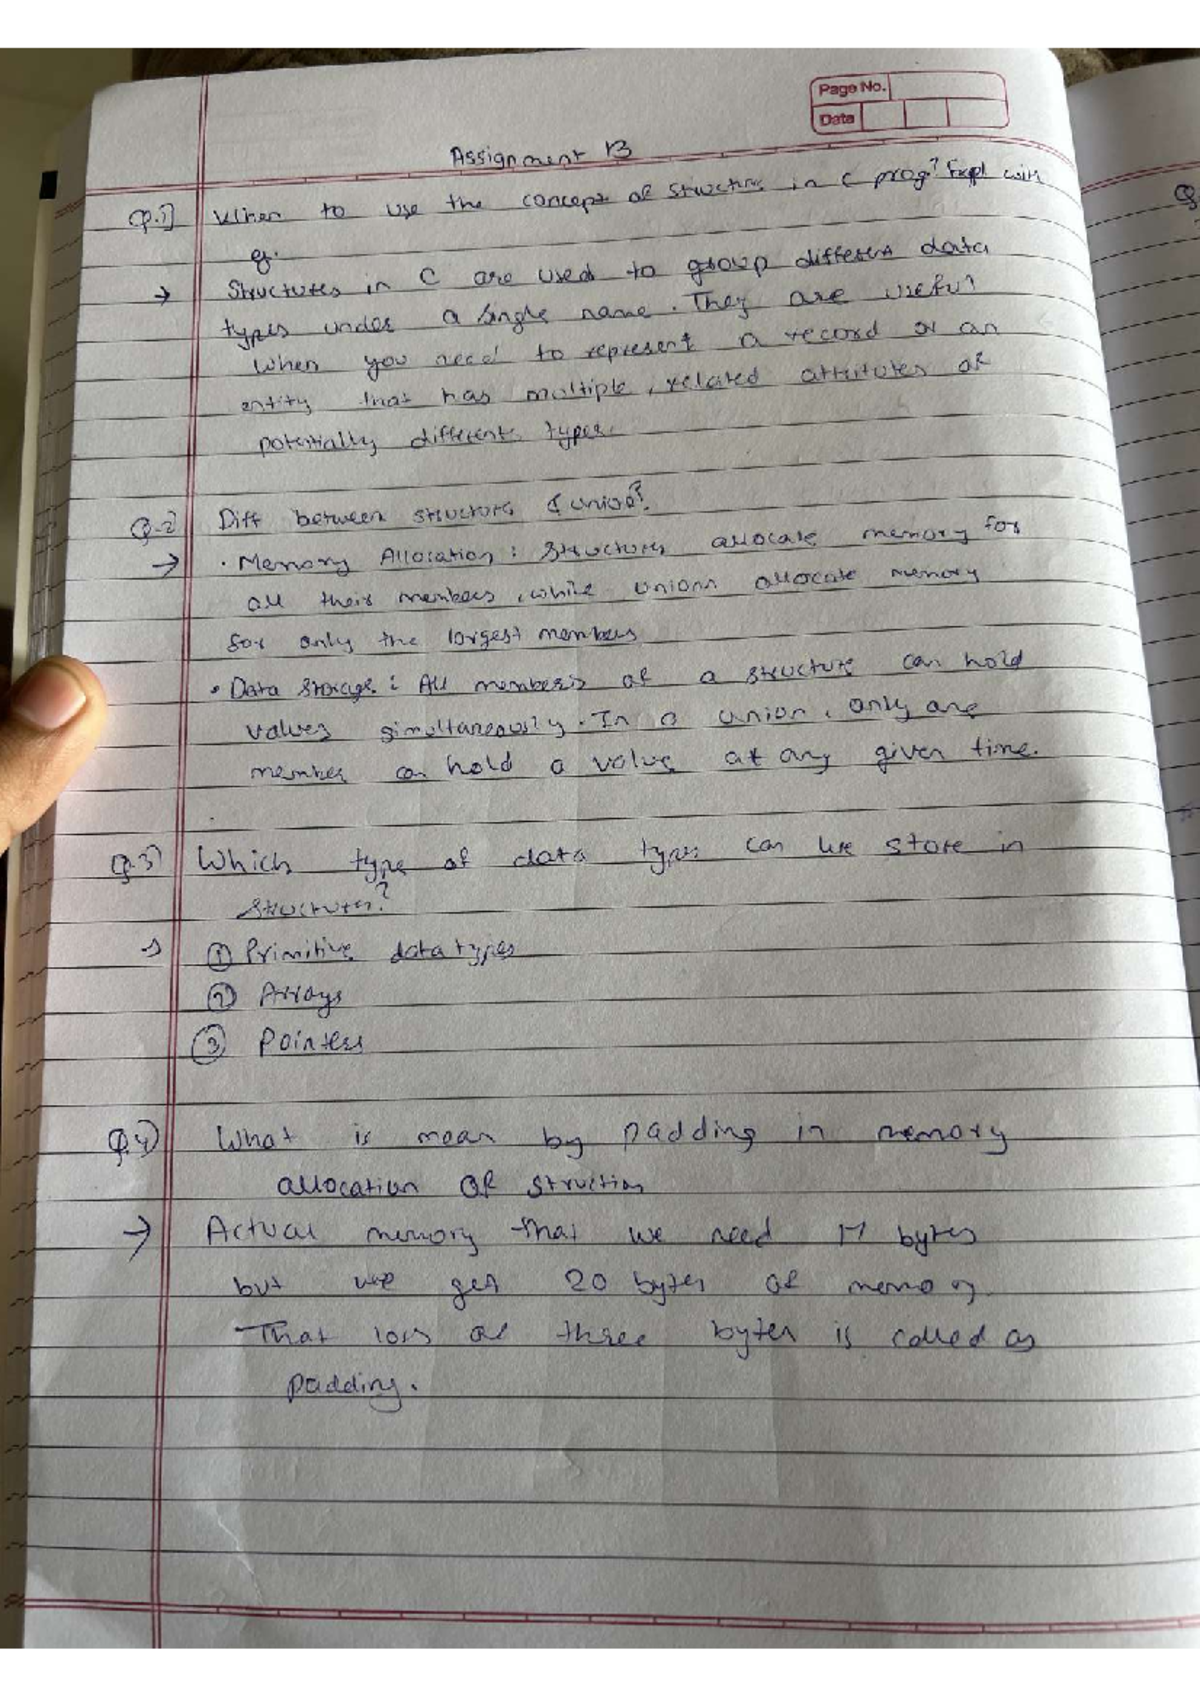 Page No.
Date
Assignment 13
Q.1] When to use the concept of structure in C prog? Expl with
eg.
→ Structures in C are used to group different data
types under a single name. They are useful
when you need to represent a record or an
entity that has multiple, related attritutes of
potentially different types.
Q.2] Diff between structure & union?
→ • Memory Allocation : Structures allocate memory for
all their members, while unions allocate memory
for only the largest members
• Data Storage : All members of a structure can hold
values simultaneously. In a union, only one
member can hold a value at any given time.
Q.3] Which type of data types can we store in
structures?
→ ① Primitive data types
② Arrays
③ Pointers
Q.4] What is mean by padding in memory
allocation of struction
→ Actual memory that we need 17 bytes
but we get 20 bytes of memory.
That loss of three bytes is called as
padding.